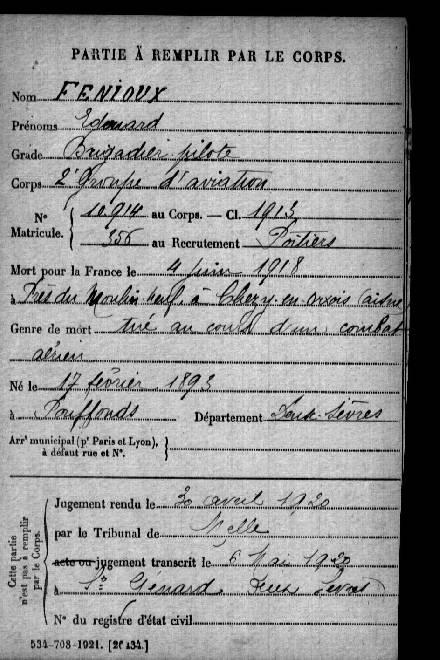 PARTIE À REMPLIR PAR LE CORPS.
Nom FENIOUX
Prénoms Edouard
Grade Brigadier pilote
Corps 2e Groupe d'aviation
N° Matricule. { 10914 au Corps. — Cl. 1913
356 au Recrutement Poitiers
Mort pour la France le 4 juin 1918
à Près du Moulin neuf à Chézy-en-Orxois (Aisne
Genre de mort tué au cours d'un combat
aérien
Né le 17 février 1893
à Pouffonds Département Deux-Sèvres
Arrt municipal (pr Paris et Lyon), à défaut rue et N°. }
Cette partie n'est pas à remplir par le Corps.
Jugement rendu le 30 avril 1920
par le Tribunal de Melle
acte ou jugement transcrit le 6 Mai 1920
à St Genard Deux Sèvres
N° du registre d'état civil
534-708-1921. [26434.]